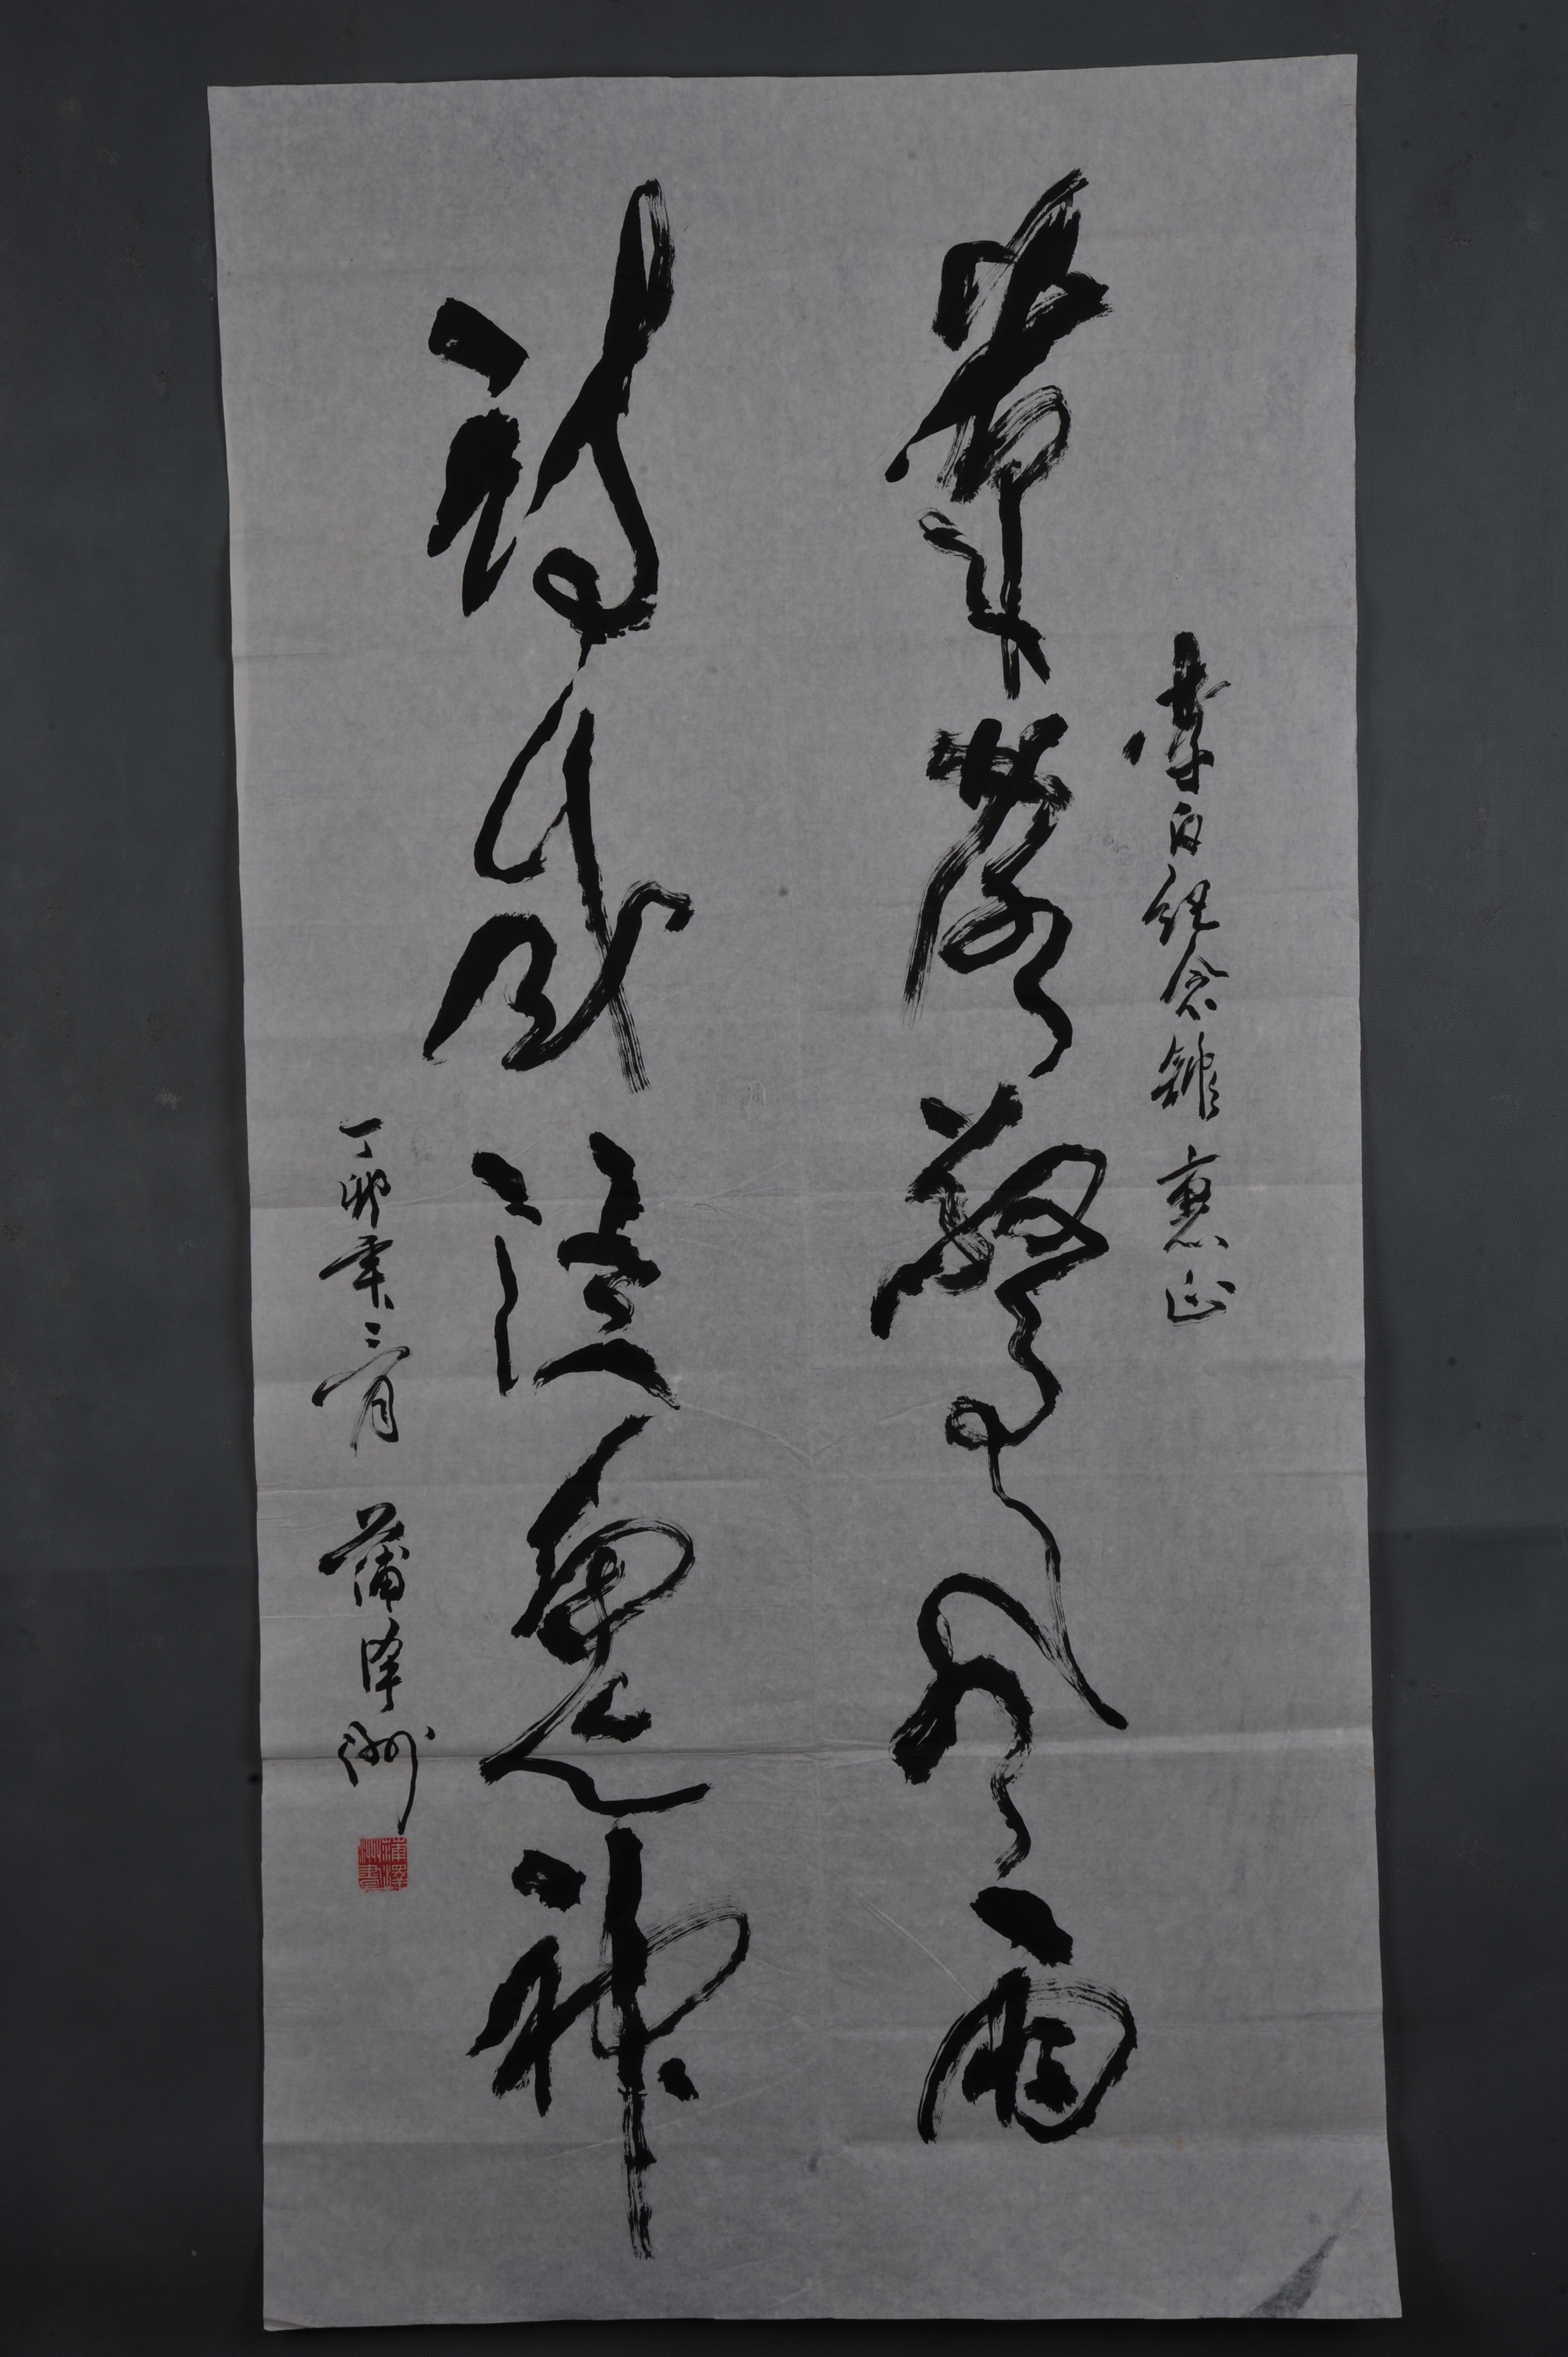 李白紀念館 惠正
筆落驚風雨
詩成泣鬼神
丁卯年三月 蒲泽洲
蒲澤洲書